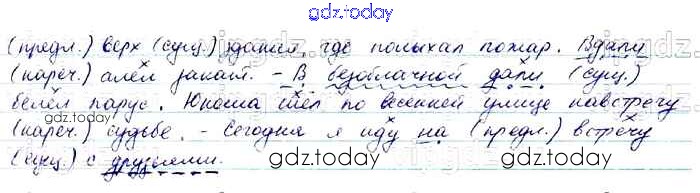 gdz.today
(предл.) верх (сущ.) здания, где полыхал пожар. Вдали
(нареч.) алел закат. - В безоблачной дали (сущ.)
белел парус. Юноша шёл по весенней улице навстречу
(нареч.) судьбе. - Сегодня я иду на (предл.) встречу
(сущ.) с друзьями.
gdz.today gdz.today